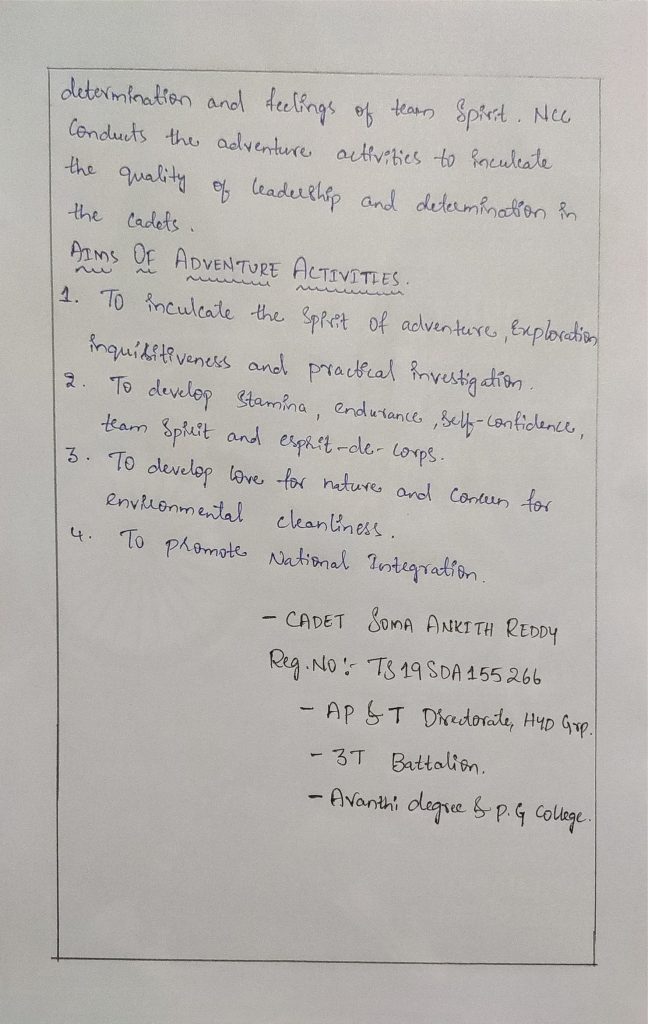 determination and feelings of team Spirit. NCC
Conducts the adventure activities to inculcate
the quality of leadership and determination in
the Cadets.
AIMS OF ADVENTURE ACTIVITIES.
1. To inculcate the Spirit of adventure, Exploration,
inquisitiveness and practical investigation.
2. To develop Stamina, endurance, Self-Confidence,
team Spirit and esprit-de-corps.
3. To develop love for nature and Concern for
environmental cleanliness.
4. To promote National Integration.
- CADET SOMA ANKITH REDDY
Reg.NO:- TS19SDA155266
- AP & T Directorate, HYD Grp.
- 3T Battalion.
- Avanthi degree & P.G College.